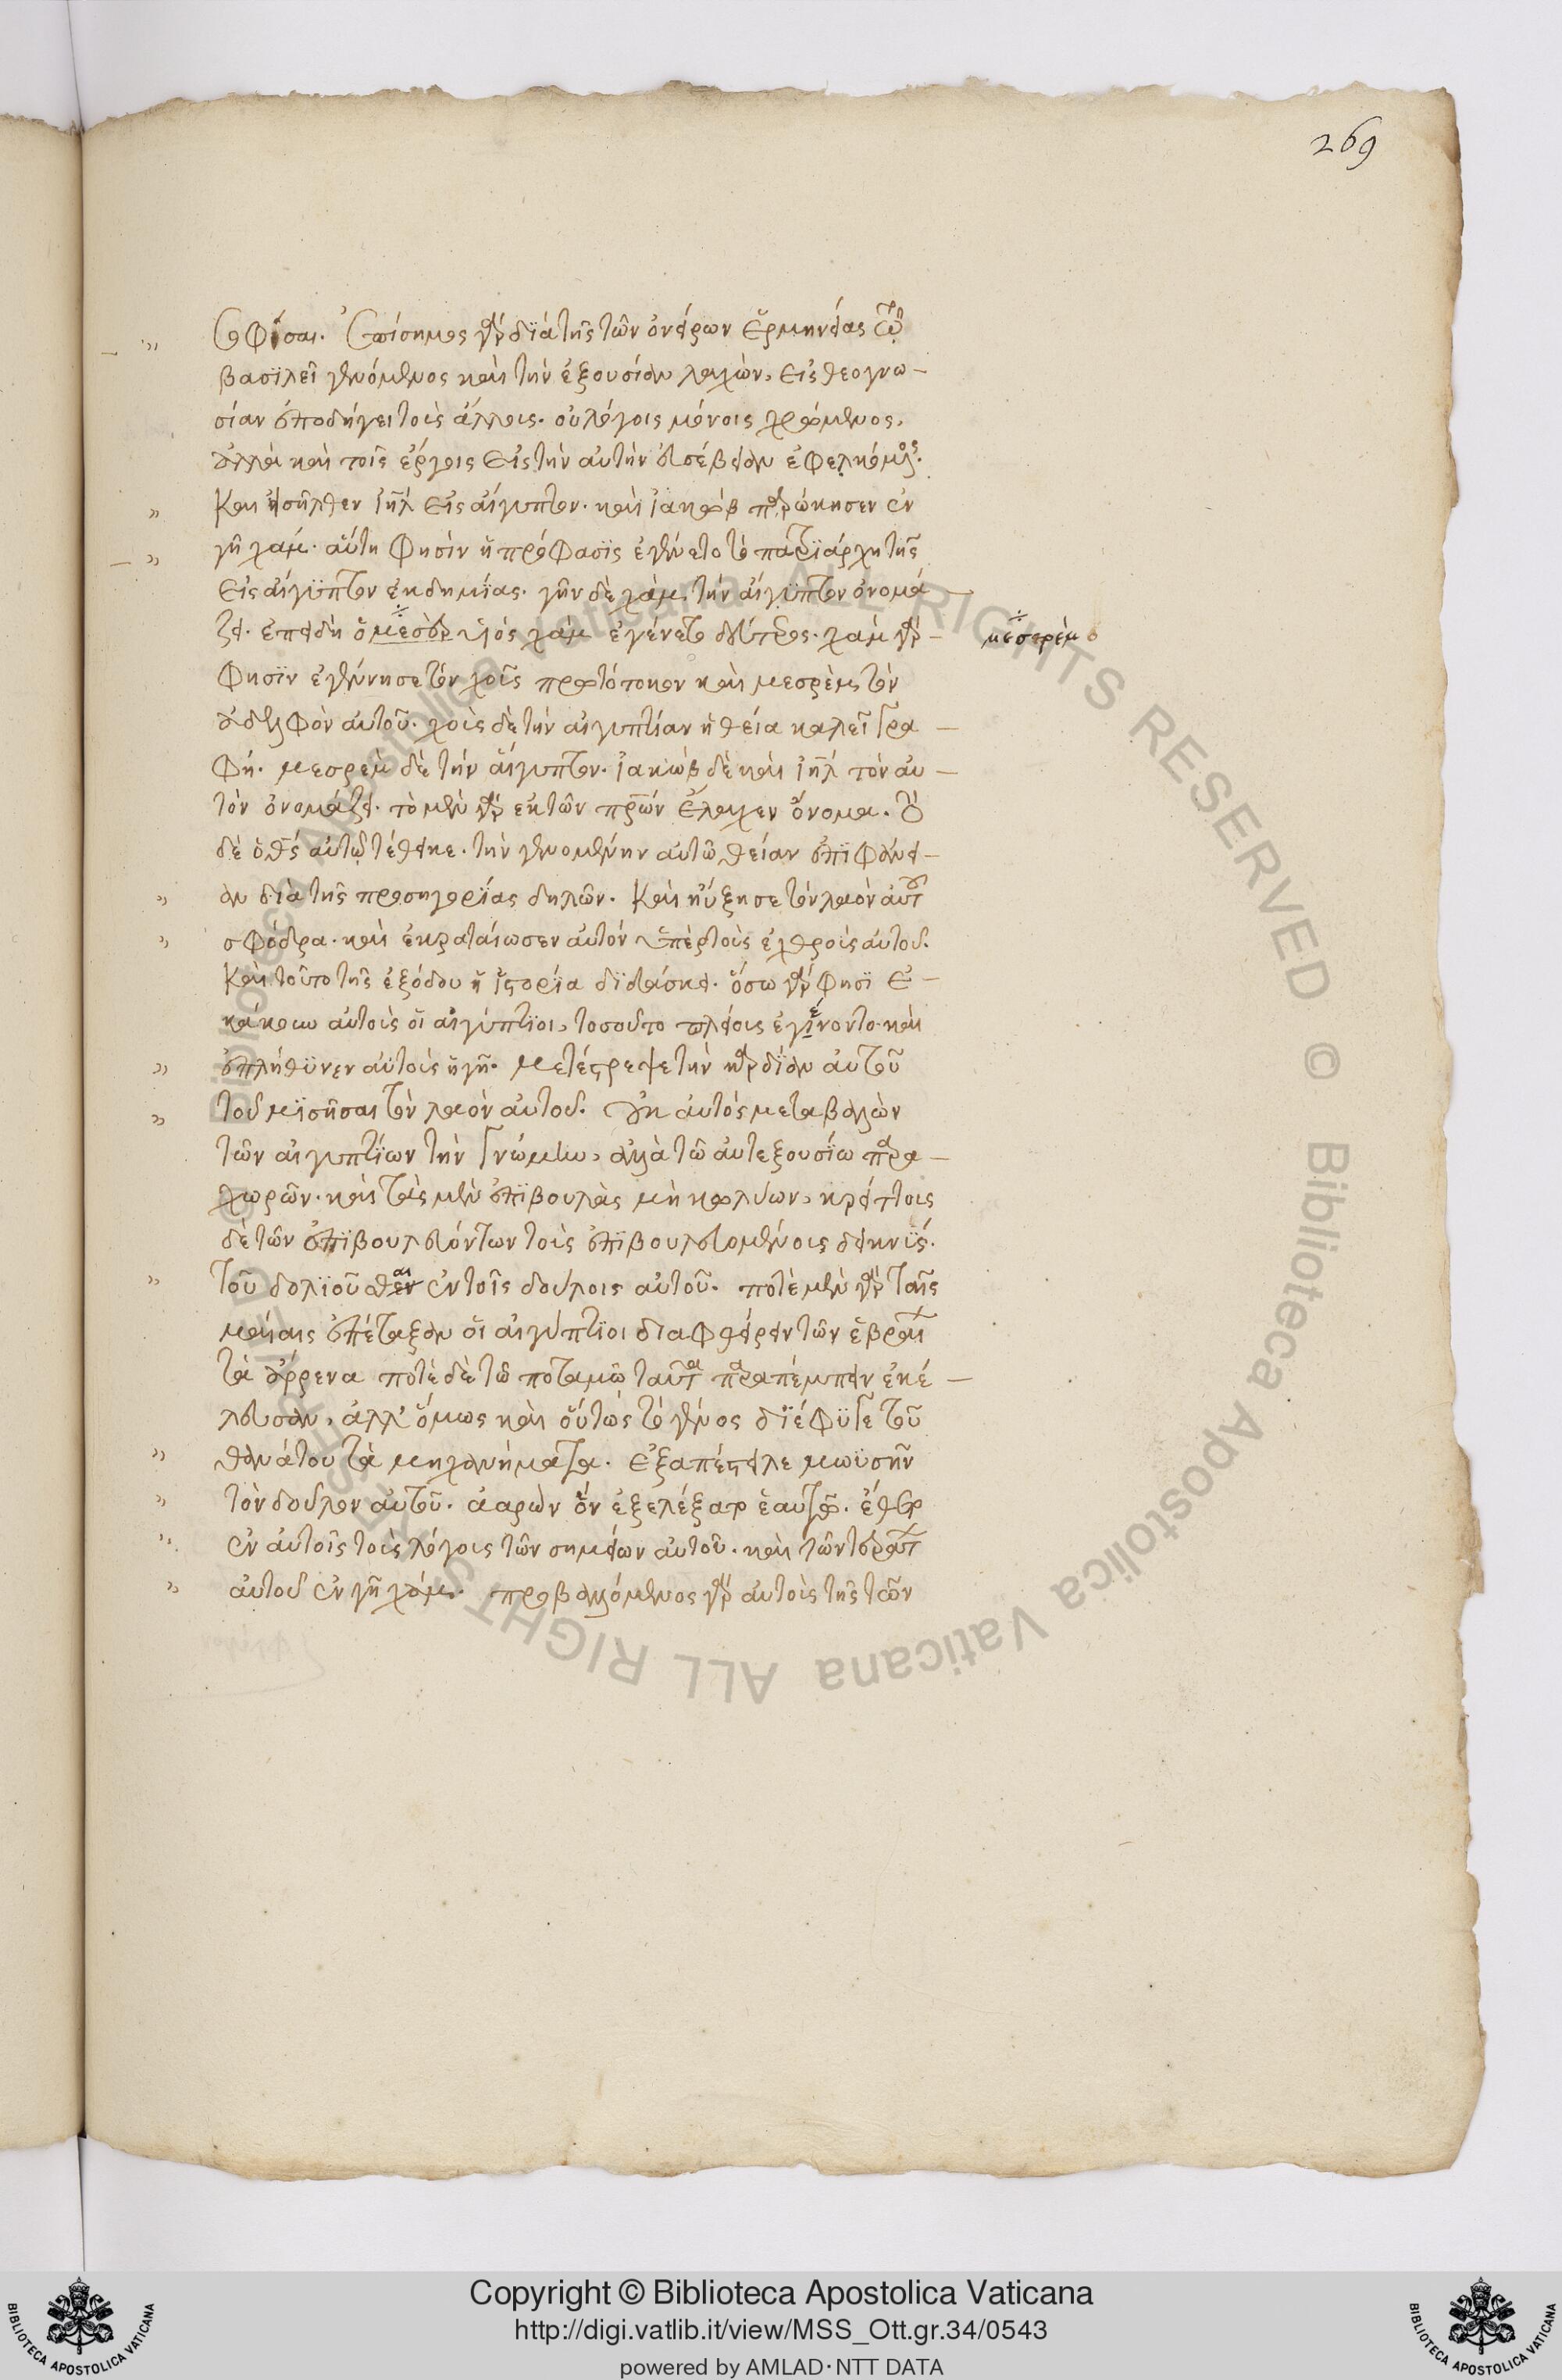 269
σοφίσαι. ἐπίσημος γὰρ διὰ τῆς τῶν ὀνείρων ἑρμηνείας τῶ
βασιλεῖ γενόμενος καὶ τὴν ἐξουσίαν λαχὼν, εἰς θεογνω-
σίαν ἐποδήγει τοὺς ἄλλους. οὐ λόγοις μόνοις χρώμενος,
ἀλλὰ καὶ τοῖς ἔργοις εἰς τὴν αὐτὴν εὐσέβειαν ἐφελκόμενος.
Και εἰσῆλθεν ἰηλ εἰς αἴγυπτον. καὶ ἰακὼβ παρώκησεν ἐν
γῆ χαμ. αὕτη φησὶν ἡ πρόφασις ἐγένετο τῶ πατριάρχη τῆς
εἰς αἴγυπτον ἐκδημίας. γῆν δὲ χὰμ, τὴν αἴγυπτον ὀνομά
ζει. ἐπειδὴ ὁ μεσὸρ υἱός χὰμ ἐγένετο δεύτερος. χαμ γὰρ -
μεσερὲμ
φησϊν ἐγέννησε τὸν χοῦς πρωτότοκον καὶ μεσρὲμ, τὸν
ἀδελφὸν αὐτοῦ. χοὺς δὲ τὴν αἰγυπτίαν ἡ θεία καλεῖ γρα -
φή. μεσρεμ δὲ τὴν αἴγυπτον. ἰακὼβ δὲ καὶ ἰηλ τὸν αυ -
τὸν ὀνομάζει. τὸ μὲν γὰρ ἐκ τῶν πρων ἔλαχεν ὄνομα. τὸ
δὲ ὁ θς αὐτῶ τέθεικε. τὴν γενομένην αὐτῶ θείαν ἐπιφάνει-
αν διὰ τῆς προσηγορίας δηλῶν. Και ηὔξησε τὸν λαὸν αὐτοῦ
σφόδρα. καὶ ἐκραταίωσεν αὐτόν ὑπὲρ τοὺς ἐχθροὺς αὐτοῦ.
Και τοῦτο τῆς ἐξόδου ἡ ἱστορία διδάσκει. ὅσω γὰρ φησϊ ἐ -
κάκουν αὐτοὺς οἱ αἰγύπτιοι, τοσοῦτο πλείους ἐγίνοντο. καὶ
ἐπλήθυνεν αὐτοὺς ἡ γῆ. μετέστρεψε τὴν καρδίαν αὐτοῦ
τοῦ μισῆσαι τὸν λαὸν αὐτοῦ. οὐκ αὐτός μεταβαλὼν
τῶν αἰγυπτίων τὴν γνώμην, ἀλλὰ τῶ αὐτεξουσίω παρα -
χωρῶν. καὶ τὰς μὲν ἐπιβουλὰς μὴ κωλύων, κρείττους
δὲ τῶν ἐπιβουλευόντων τοὺς ἐπιβουλευομένους δεικνύς.
τοῦ δολιοῦσθεν αι ἐν τοῖς δούλοις αὐτοῦ. ποτὲ μὲν γὰρ ταῖς
μαίαις ἐπέταξαν οἱ αἰγύπτιοι διαφθείρειν τῶν ἑβραί
τὰ ἄρρενα ποτὲ δὲ τῶ ποταμῶ ταῦτα παραπέμπειν ἐκέ -
λευσαν, ἀλλ' ὅμως καὶ οὕτως τὸ γένος διέφυγε τοῦ
θανάτου τὰ μηχανήματα. ἐξαπέστειλε μωυσῆν
τὸν δοῦλον αὐτοῦ. ἀαρὼν ὃν ἐξελέξατο ἑαυτῶ. ἔθετο
ἐν αὐτοῖς τοὺς λόγους τῶν σημείων αὐτοῦ. καὶ τῶν τεράτ
αὐτοῦ ἐν γῆ χάμ. προβαλλόμενος γὰρ αὐτοὺς τῆς τῶν
Copyright © Biblioteca Apostolica Vaticana
http://digi.vatlib.it/view/MSS_Ott.gr.34/0543
powered by AMLAD·NTT DATA